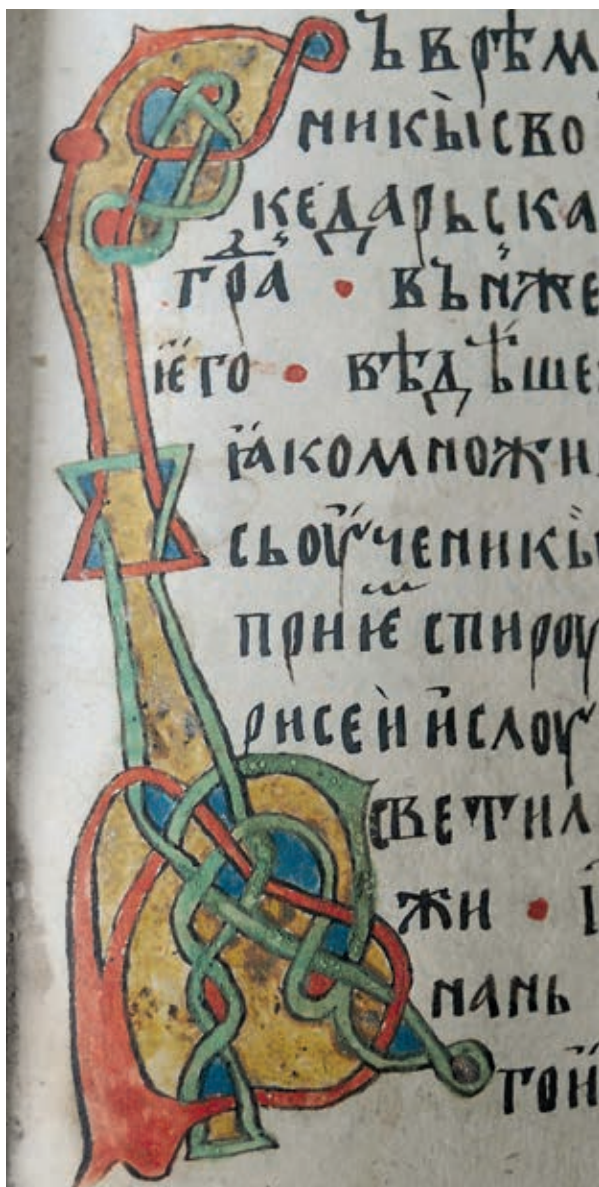 Ъ врѣм
никы сво
кедарьска
гра · вь нѥже
ѥго · вѣдѣше
ꙗко множи
сь оученикы
при ѥ спи роу
рисеи и слоу
светил
жи · і
нань
гои